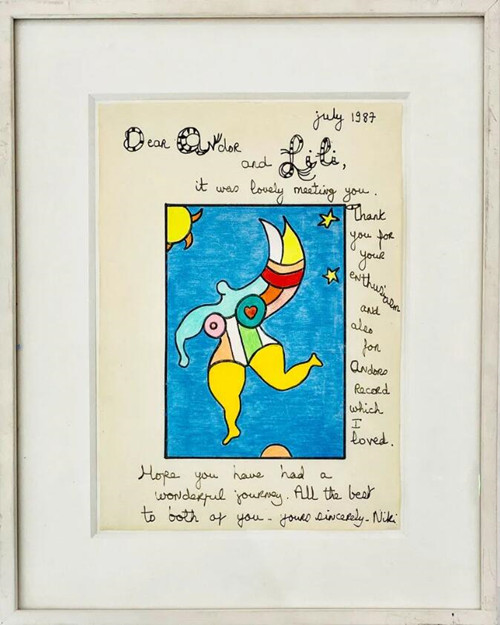 july 1987
Dear Andor
and Lili,
it was lovely meeting you.
Thank
you for
your
enthusiasm
and
also
for
Andors
Record
which
I
loved.
Hope you have had a
wonderful journey. All the best
to both of you - yours sincerely - Niki